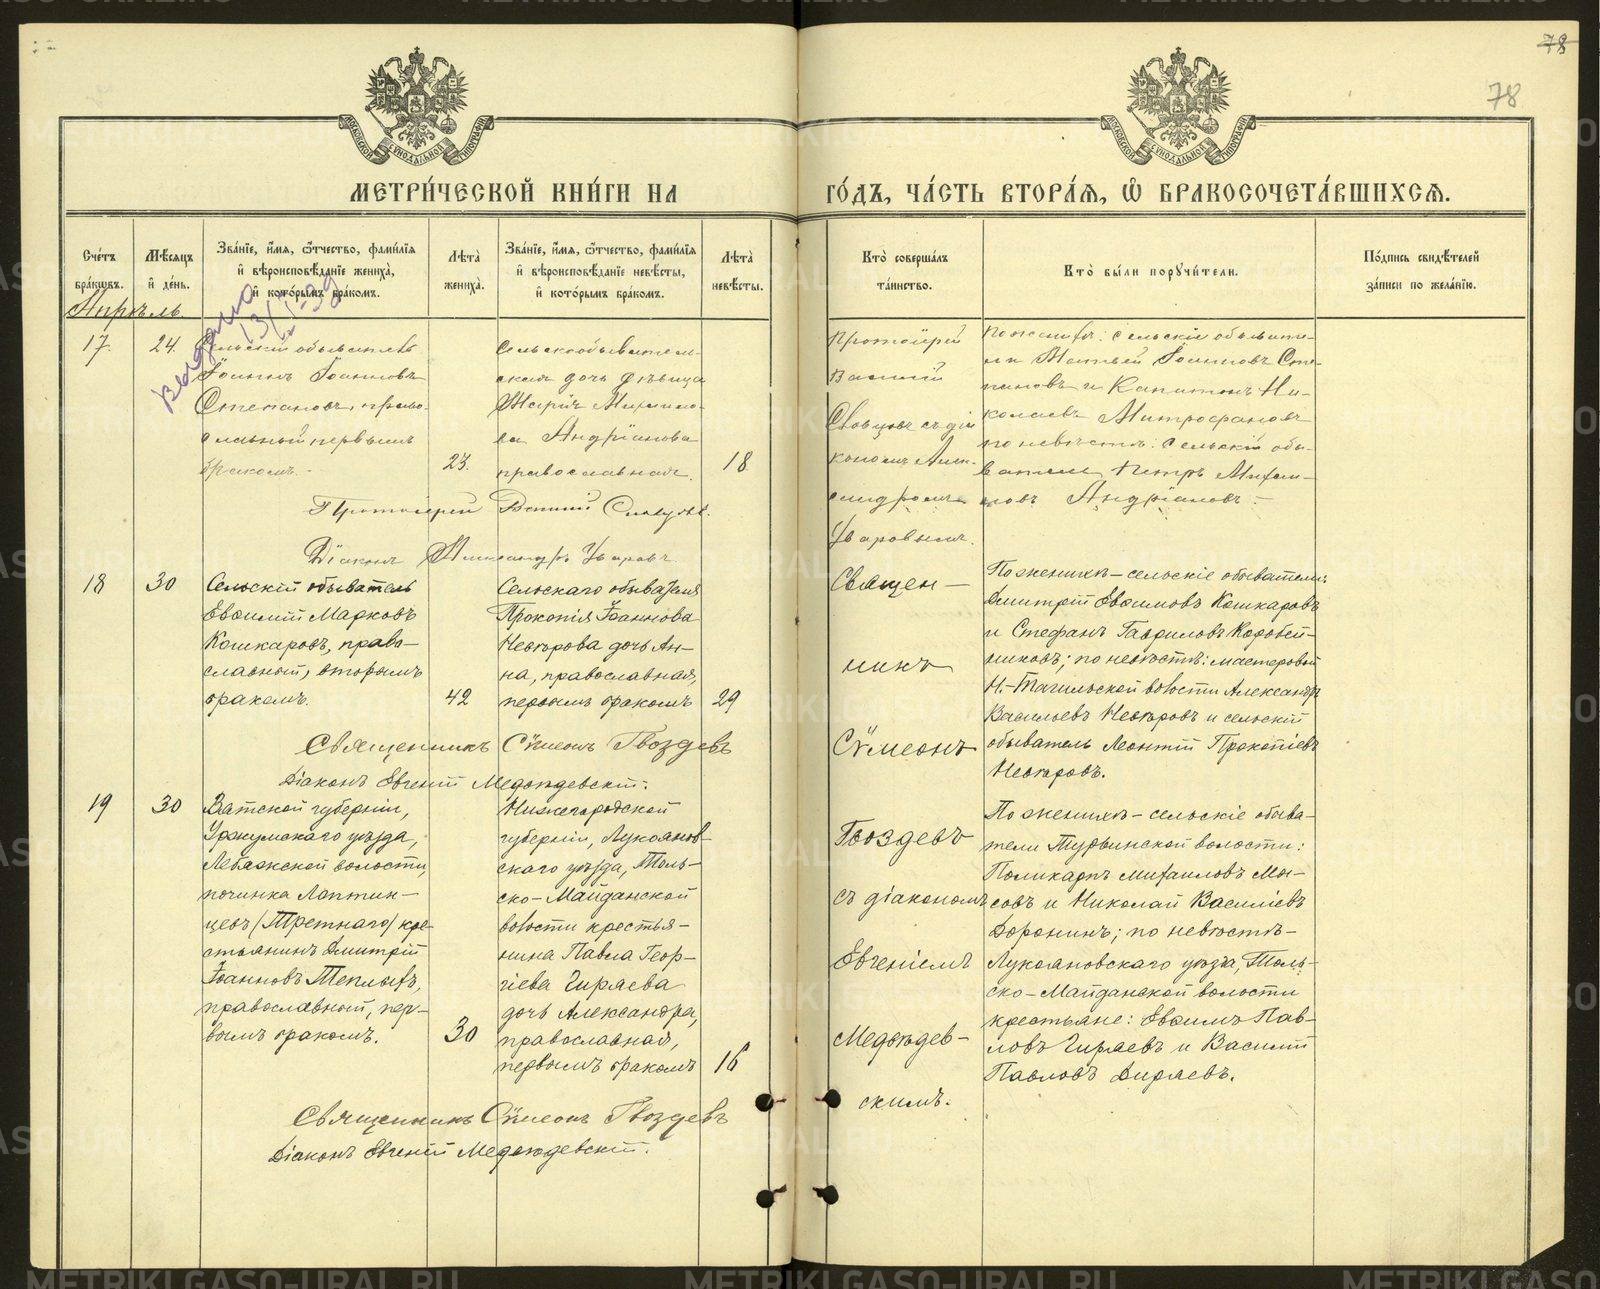 78
78
МЕТРИ́ЧЕСКОЙ КНИ́ГИ НА
ГО́ДЪ, ЧА́СТЬ ВТОРА́Я, Ѽ БРАКОСОЧЕТА́ВШИХСЯ.
Сче́тъ бра́кѡвъ.
Мѣ́сяцъ и҆ де́нь.
Зва́нїе, и҆́мя, ѻ҆́тчество, фами́лїя
и҆ вѣроисповѣ́данїе жениха̀,
и҆ кото́рымъ бра́комъ.
Лѣ́та̀ жениха̀.
Зва́нїе, и҆́мя, ѻ҆́тчество, фами́лїя
и҆ вѣроисповѣ́данїе невѣ́сты,
и҆ кото́рымъ бра́комъ.
Лѣ́та̀ невѣ́сты.
Кто̀ соверша́лъ та́инство.
Кто̀ бы́ли поручи́тели.
По́дпись свидѣ́телей
за́писи по жела́нїю.
Апрѣль.
выдано
17.
24.
Сельскій обыватель
Іоаннъ Іоанновъ
Степановъ, право-
славный первымъ
бракомъ.
23.
Сельскообыватель-
ская дочь дѣвица
Марія Михаило-
ва Андріанова
православная.
18
Протоіерей
Василій
Словцовъ съ діа-
кономъ Алек-
сандромъ
Уваровымъ.
По женихѣ: сельскіе обывате-
ли Матвей Іоанновъ Сте-
пановъ и Капитонъ Ни-
колаевъ Митрофановъ
по невѣстѣ: сельскій обы-
ватель Петръ Михаи-
ловъ Андріановъ.
Протоіерей Василій Словцовъ.
Діаконъ Александръ Уваровъ
18
30
Сельскій обыватель
Евѳимій Марковъ
Кошкаровъ, право-
славный, вторымъ
бракомъ.
42
Сельскаго обывателя
Прокопія Іоаннова
Невѣрова дочь Ан-
на, православная,
первымъ бракомъ
29
Священ-
никъ
Сѵмеонъ
По женихѣ - сельскіе обыватели:
Димитрій Евѳимовъ Кошкаровъ
и Стефанъ Гавриловъ Коробей-
никовъ; по невѣстѣ: мастеровой
Н.-Тагильской волости Александръ
Васильевъ Невѣровъ и сельскій
обыватель Леонтій Прокопіевъ
Невѣровъ.
Священникъ Сѵмеонъ Гвоздевъ
Діаконъ Евгеній Медвѣдевскій.
19
30
Вятской губерніи,
Уржумскаго уѣзда,
Лебяжской волости,
починка Лаптин-
цевъ (Третнаго) кре-
стьянинъ Димитрій
Іоанновъ Теплыхъ,
православный, пер-
вымъ бракомъ.
30
Нижегородской
губерніи, Лукоянов-
скаго уѣзда, Толь-
ско-Майданской
волости крестья-
нина Павла Геор-
гіева Ширяева
дочь Александра,
православная,
первымъ бракомъ
16
Гвоздевъ
съ діакономъ
Евгеніемъ
Медвѣдев-
скимъ.
По женихѣ - сельскіе обыва-
тели Турьинской волости:
Поликарпъ Михаиловъ Мы-
совъ и Николай Василіевъ
Доронинъ; по невѣстѣ -
Лукояновскаго уѣзда, Толь-
ско-Майданской волости
крестьяне: Евѳимъ Пав-
ловъ Ширяевъ и Василій
Павловъ Ширяевъ.
Священникъ Сѵмеонъ Гвоздевъ
Діаконъ Евгеній Медвѣдевскій.
METRIKI.GASO-URAL.RU